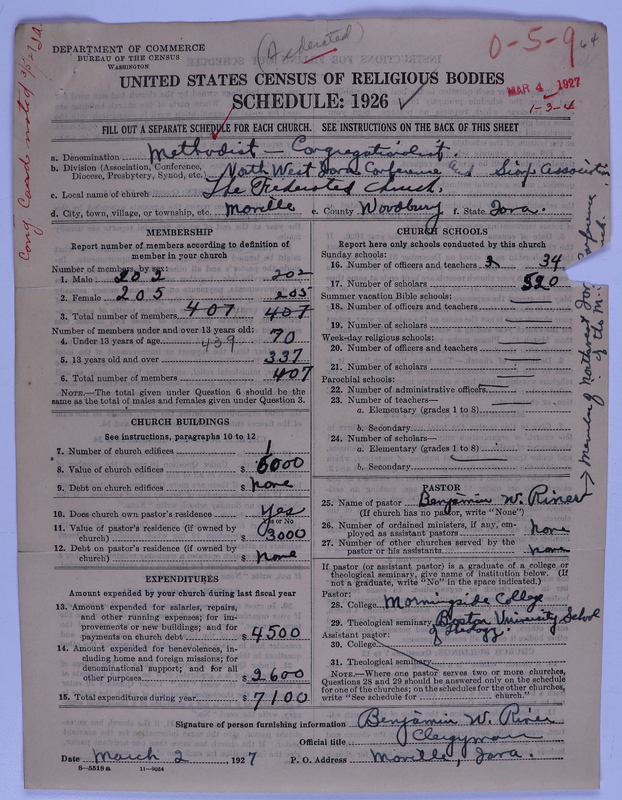 DEPARTMENT OF COMMERCE
BUREAU OF THE CENSUS
WASHINGTON
(Federated)
0-5-9 64
MAR 4 1927
1-3-4
UNITED STATES CENSUS OF RELIGIOUS BODIES
SCHEDULE: 1926 ✓
FILL OUT A SEPARATE SCHEDULE FOR EACH CHURCH. SEE INSTRUCTIONS ON THE BACK OF THIS SHEET
a. Denomination Methodist – Congregationalist.
b. Division (Association, Conference, Diocese, Presbytery, Synod, etc.) North West Iowa Conference and Sioux Association
c. Local name of church The Federated Church,
d. City, town, village, or township, etc. Moville e. County Woodbury f. State Iowa.
Cong Card noted
→ Member of Northwest Iowa Conference
of the M.
MEMBERSHIP
Report number of members according to definition of
member in your church
Number of members, by sex:
1. Male 202 202
2. Female 205 205
3. Total number of members 407 407
Number of members under and over 13 years old:
4. Under 13 years of age 439 70
5. 13 years old and over 337
6. Total number of members 407
NOTE.—The total given under Question 6 should be
the same as the total of males and females given under Question 3.
CHURCH BUILDINGS
See instructions, paragraphs 10 to 12
7. Number of church edifices 1
8. Value of church edifices $ 6000
9. Debt on church edifices $ none
10. Does church own pastor's residence? Yes
Yes or No
11. Value of pastor's residence (if owned by
church) $ 3000
12. Debt on pastor's residence (if owned by
church) $ none
EXPENDITURES
Amount expended by your church during last fiscal year
13. Amount expended for salaries, repairs,
and other running expenses; for im-
provements or new buildings; and for
payments on church debt $ 4500
14. Amount expended for benevolences, in-
cluding home and foreign missions; for
denominational support; and for all
other purposes $ 2600
15. Total expenditures during year $ 7100
CHURCH SCHOOLS
Report here only schools conducted by this church
Sunday schools:
16. Number of officers and teachers 34
17. Number of scholars 320
Summer vacation Bible schools:
18. Number of officers and teachers
19. Number of scholars
Week-day religious schools:
20. Number of officers and teachers
21. Number of scholars
Parochial schools:
22. Number of administrative officers
23. Number of teachers—
a. Elementary (grades 1 to 8)
b. Secondary
24. Number of scholars—
a. Elementary (grades 1 to 8)
b. Secondary
PASTOR
25. Name of pastor Benjamin W. Riner
(If church has no pastor, write "None")
26. Number of ordained ministers, if any, em-
ployed as assistant pastors none
27. Number of other churches served by the
pastor or his assistants none
If pastor (or assistant pastor) is a graduate of a college or
theological seminary, give name of institution below. (If
not a graduate, write "No" in the space indicated.)
Pastor:
28. College Morningside College
29. Theological seminary Boston University School
of Theology.
Assistant pastor:
30. College
31. Theological seminary
NOTE.—Where one pastor serves two or more churches,
Questions 28 and 29 should be answered only on the schedule
for one of the churches; on the schedules for the other churches,
write "See schedule for ______ church."
Signature of person furnishing information Benjamin W. Riner
Official title Clergyman
Date March 2, 1927 P. O. Address Moville, Iowa.
8—5518a 11—9024